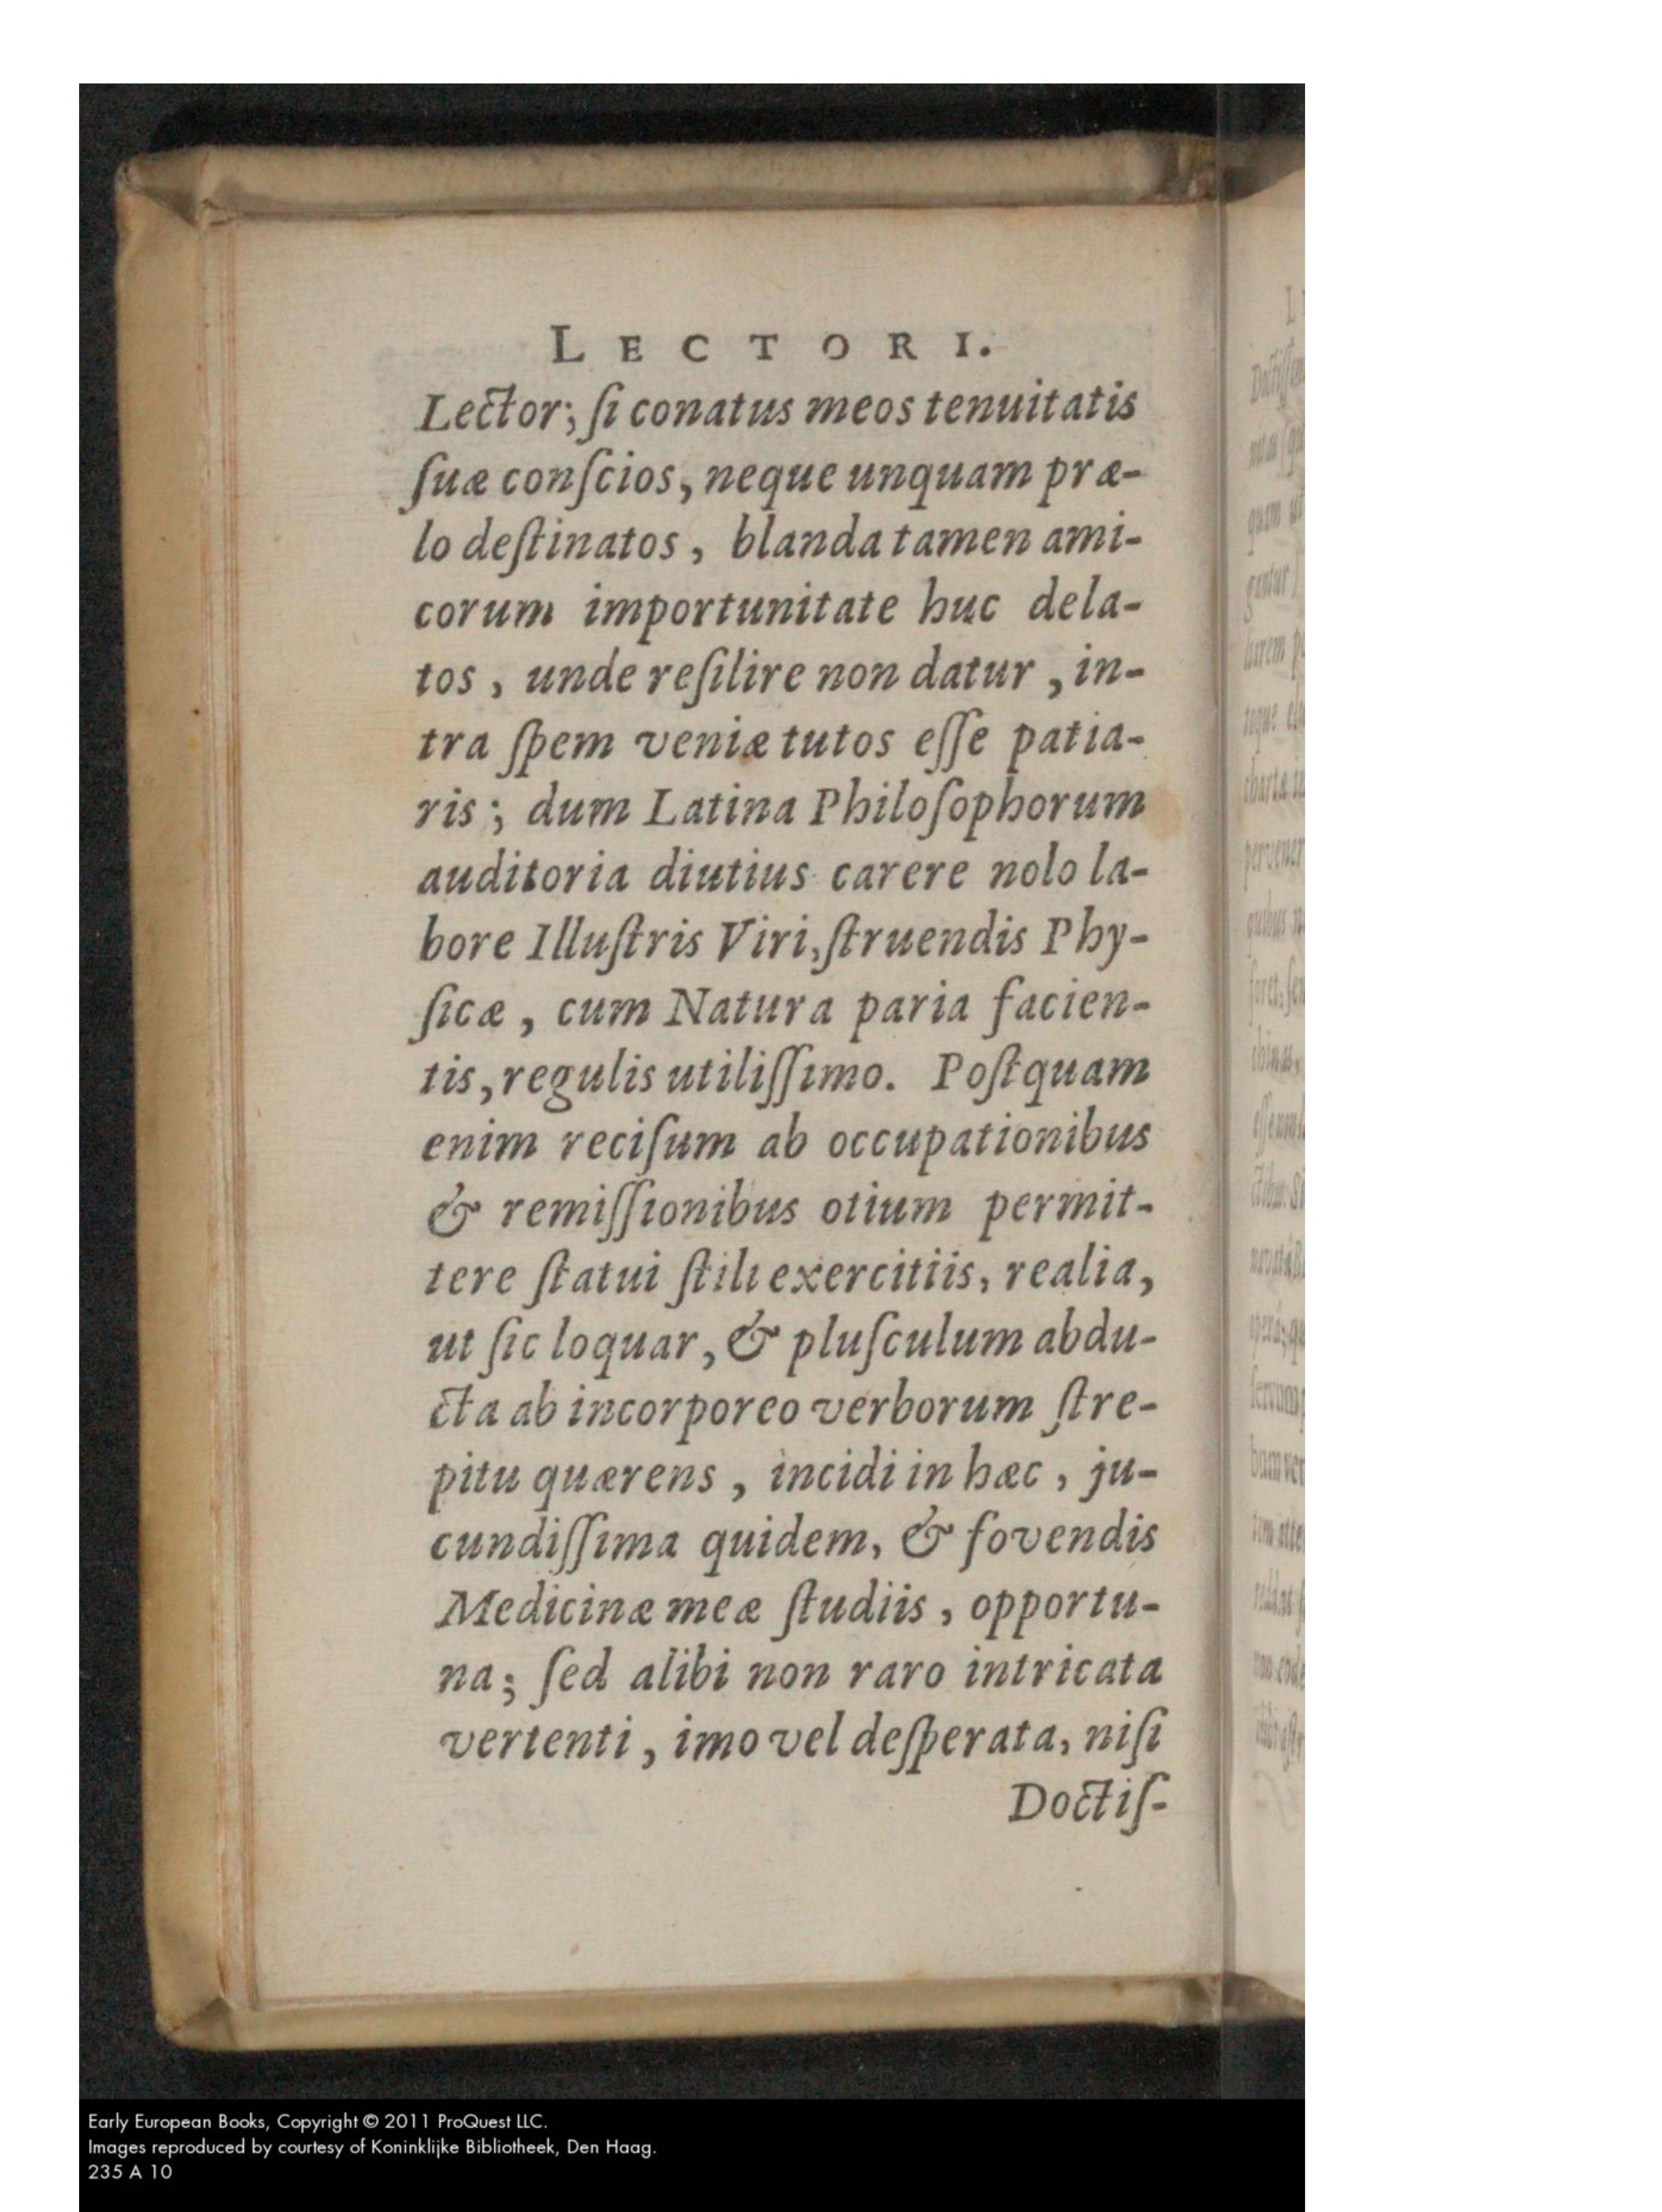 LECTORI.
Lector; ſi conatus meos tenuitatis
ſuæ conſcios, neque unquam præ-
lo deſtinatos, blanda tamen ami-
corum importunitate huc dela-
tos, unde reſilire non datur, in-
tra ſpem veniæ tutos eſſe patia-
ris; dum Latina Philoſophorum
auditoria diutius carere nolo la-
bore Illuſtris Viri, ſtruendis Phy-
ſicæ, cum Natura paria facien-
tis, regulis utiliſſimo. Poſtquam
enim reciſum ab occupationibus
& remiſſionibus otium permit-
tere ſtatui ſtili exercitiis, realia,
ut ſic loquar, & pluſculum abdu-
cta ab incorporeo verborum ſtre-
pitu quærens, incidi in hæc, ju-
cundiſſima quidem, & fovendis
Medicinæ meæ ſtudiis, opportu-
na; ſed alibi non raro intricata
vertenti, imo vel deſperata, niſi
Doctiſ-
Early European Books, Copyright © 2011 ProQuest LLC.
Images reproduced by courtesy of Koninklijke Bibliotheek, Den Haag.
235 A 10